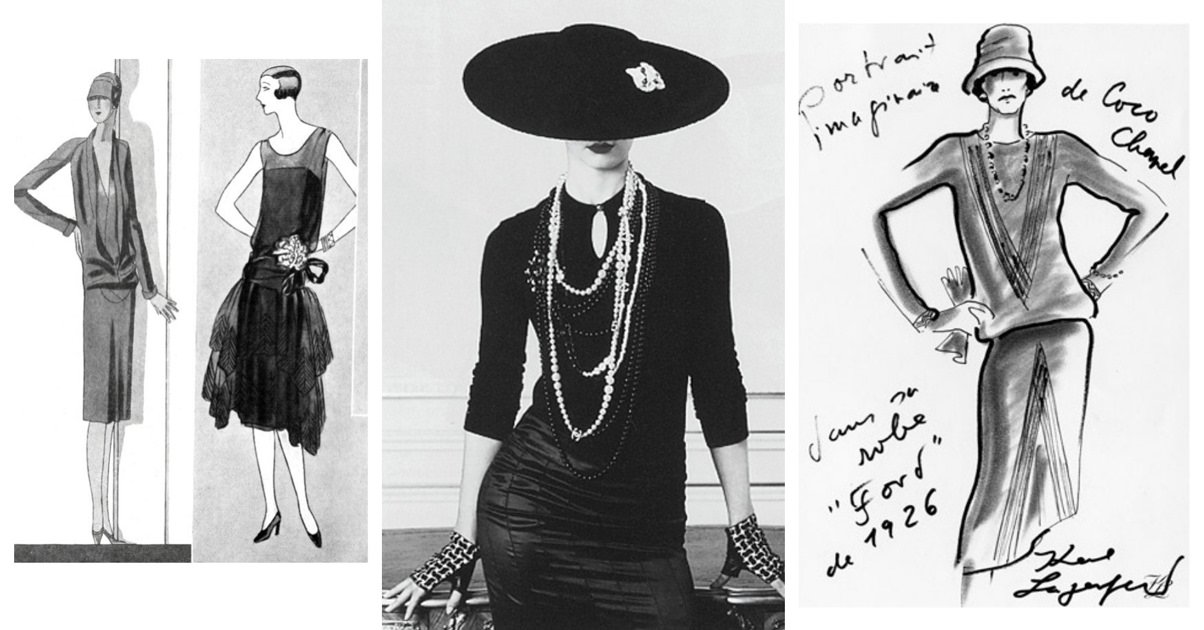 Portrait
imaginaire
de Coco
Chanel
dans sa
robe
"Ford"
de 1926
Karl
Lagerfeld